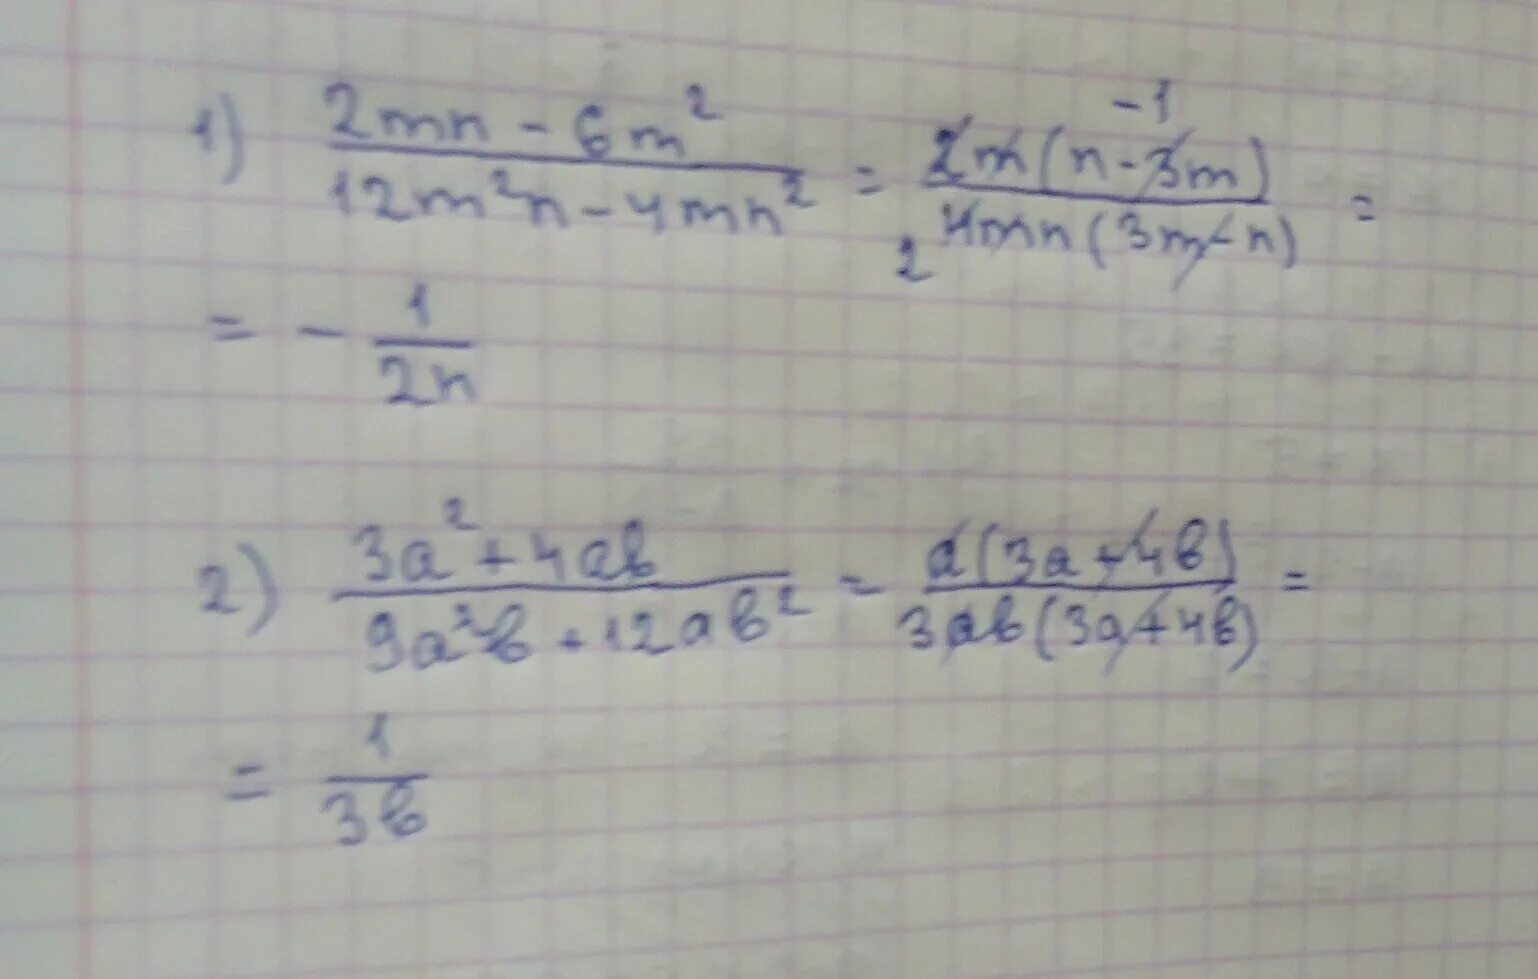 1) (2mn - 6m²)/(12m²n - 4mn²) = (2m(n - 3m))/(4mn(3m - n)) =
-1
2
= - 1/(2n)
2) (3a² + 4ab)/(9a²b + 12ab²) = (a(3a + 4b))/(3ab(3a + 4b)) =
= 1/(3b)